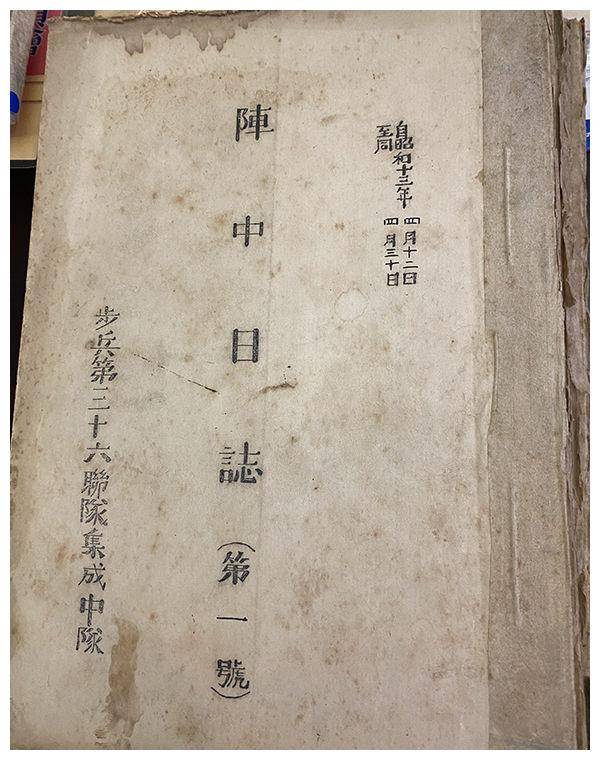 自昭和十三年 四月十二日
至同 四月三十日
陣中日誌(第一號)
步兵第三十六聯隊集成中隊